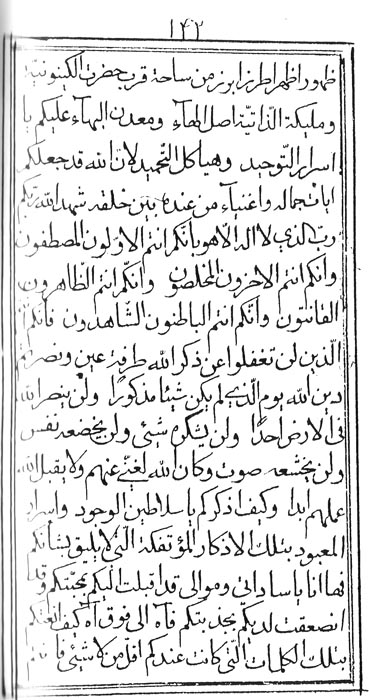 ١٤٢
ظهور اظهر اطرز ابرز من ساحة قرب حضرت الكينونية
ومليكة الذاتية اصل البهاء ومعدن البهاء عليكم يا
اسرار التوحيد وهياكل التحميد لان الله قد جعلكم
ايات جماله واغنياء من عنده بين خلقه شهد الله ربكم
رب الذي لا اله الا هو بانكم انتم الاولون المصطفون
وانكم انتم الاخرون المخلصون وانكم انتم الظاهرون
القانتون وانكم انتم الباطنون الشاهدون فانكم انتم
الذين لن تغفلوا عن ذكر الله طرفة عين ونصرتم
دين الله يوم الذي لم يكن شيئا مذكورا ولن ينصر الله
في الارض احدا ولن يشكره شيئ ولن يخضعه نفس
ولن يخشعه صوت وكان الله لغني عنهم ولا يقبل الله
عملهم ابدا وكيف اذكركم يا سلاطين الوجود واسرار
المعبود بتلك الاذكار المؤتفكة التي لا يليق بشأنكم
فها انا يا ساداتي وموالي قد اقبلت اليكم بمحبتكم وقد
انصعقت لديكم بجذبتكم فآه آه الى فوق آه كيف
بتلك الكلمات التي كانت عندكم اقل من لا شيئ فانتم